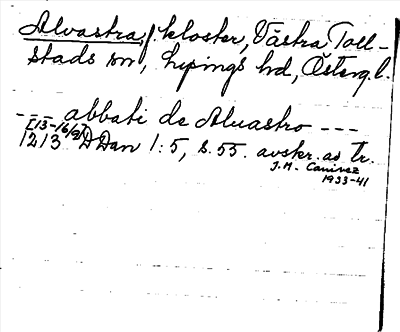 Alvastra, f. kloster, Västra Toll-
stads sn, Lysings hd, Österg. l.
--- abbati de Aluastro ---
[13-16/9]
1213 DDan 1:5, s. 55. avskr. av tr.
J.M. Canivez
1933-41